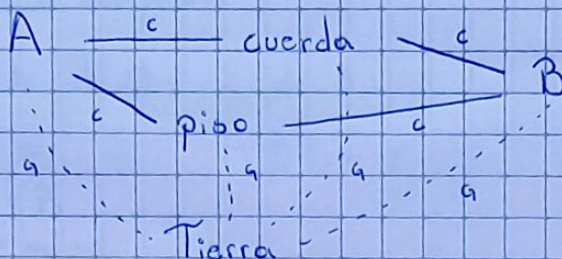 A c cuerda c B
c piso c
G G G G
Tierra